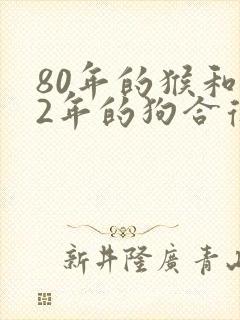 80年的猴和
2年的狗合
新井隆廣青山